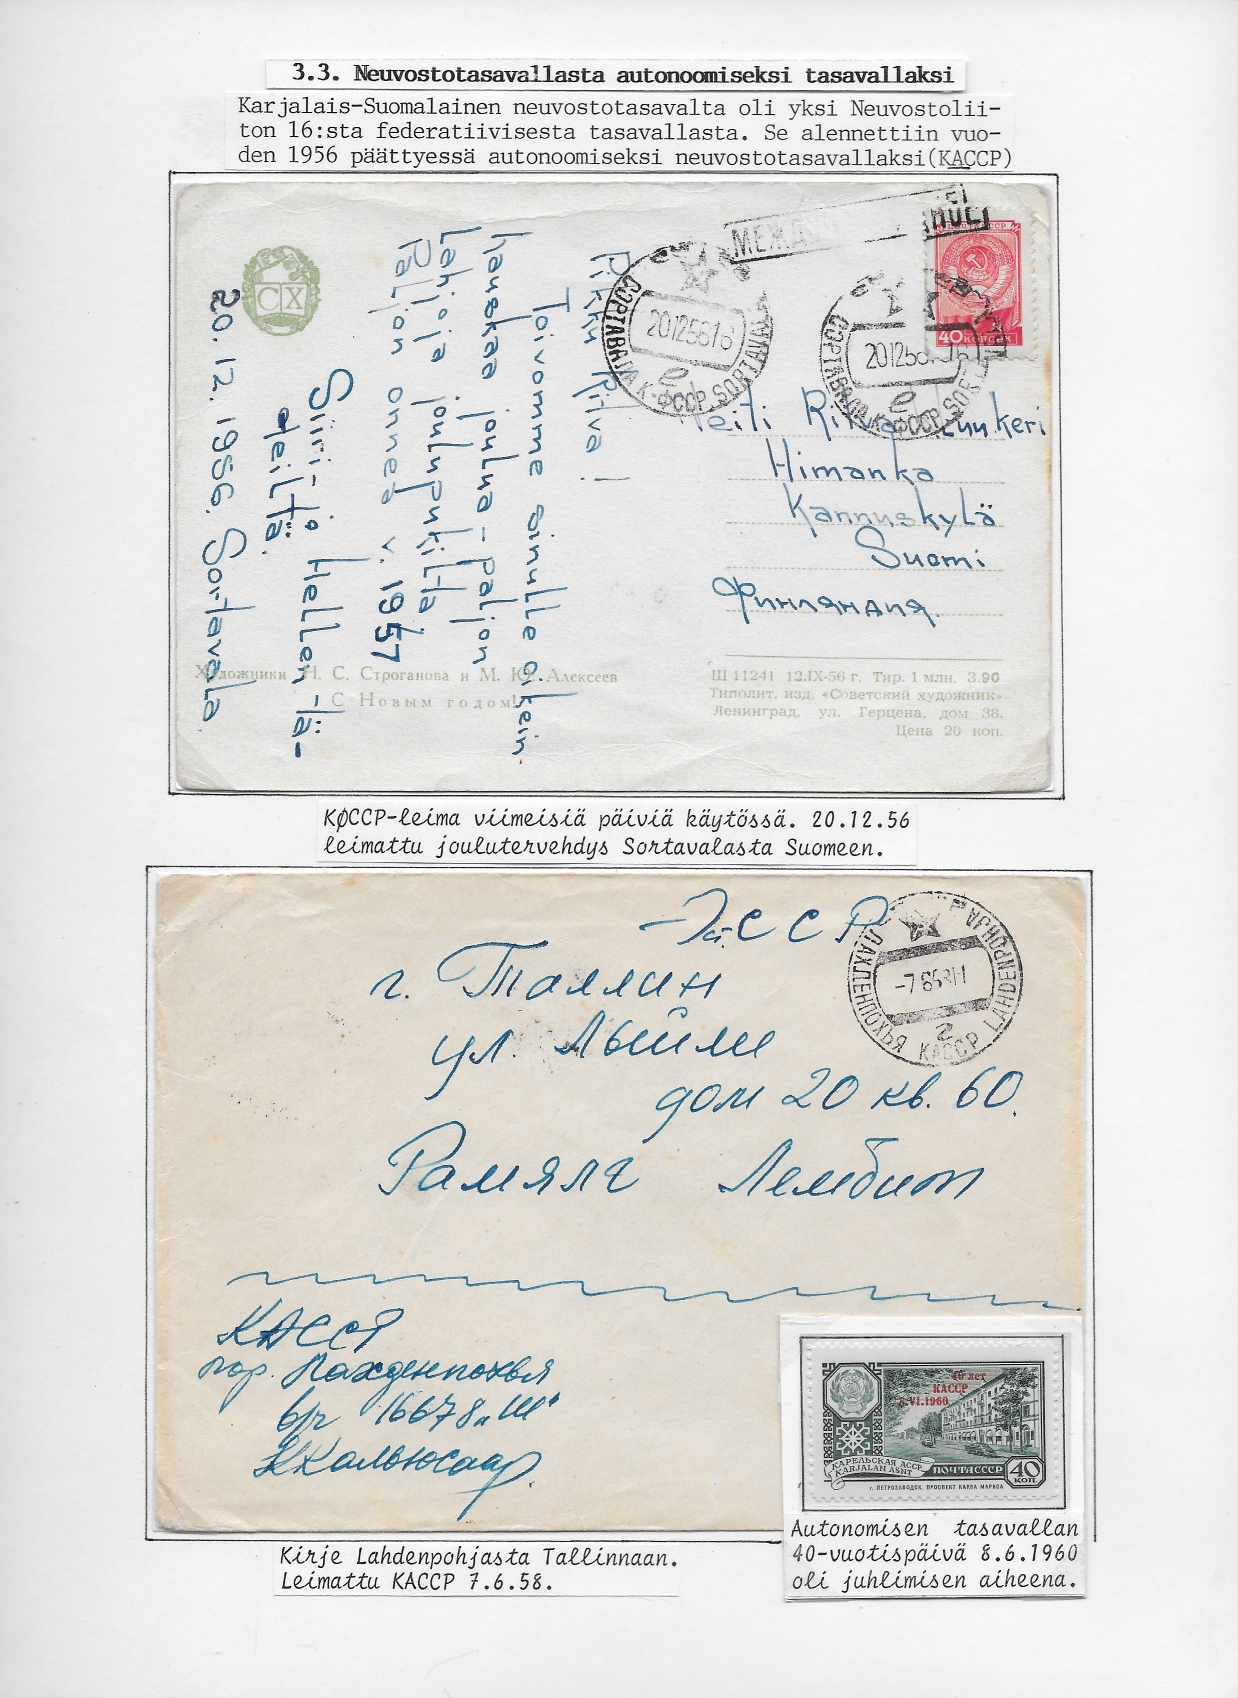 3.3. Neuvostotasavallasta autonoomiseksi tasavallaksi
Karjalais-Suomalainen neuvostotasavalta oli yksi Neuvostolii-
ton 16:sta federatiivisesta tasavallasta. Se alennettiin vuo-
den 1956 päättyessä autonoomiseksi neuvostotasavallaksi(KACCP)
СХ
Pikku Ritva!
Toivomme sinulle oikein
hauskaa joulua - paljon
Lahjoja joulupukilta
Paljon onnea v. 1957
Siiri- ja Hellen-tä-
deiltä.
20.12.1956. Sortavala
МЕЖД
СОРТАВАЛА К-ФССР SORTAVALA
20125616
2
СОРТАВАЛА К-ФССР SORT
201256
2
40 КОПЕЕК
Neiti Ritva Luukeri
Himanka
Kannuskylä
Suomi
Финляндия.
Художники Н. С. Строганова и М. Ю. Алексеев
С Новым годом!
Ш 11241 12.IX-56 г. Тир. 1 млн. 3.90
Типолит. изд. «Советский художник»
Ленинград, ул. Герцена, дом 38.
Цена 20 коп.
KØCCP-leima viimeisiä päiviä käytössä. 20.12.56
leimattu joulutervehdys Sortavalasta Suomeen.
ССР
г. Таллин
ул. Лыйми
дом 20 кв. 60.
Рамялг Лембит
ЛАХДЕНПОХЬЯ КАССР LAHDENPOHJA
-7 6 58
2
КАССР
гор. Лахденпохья
в/ч 16678 „Ш"
40 лет
КАССР
8.VI.1960
КАРЕЛЬСКАЯ АССР
KARJALAN ASNT
ПОЧТА СССР
40 КОП.
г. ПЕТРОЗАВОДСК. ПРОСПЕКТ КАРЛА МАРКСА
Kirje Lahdenpohjasta Tallinnaan.
Leimattu KACCP 7.6.58.
Autonomisen tasavallan
40-vuotispäivä 8.6.1960
oli juhlimisen aiheena.